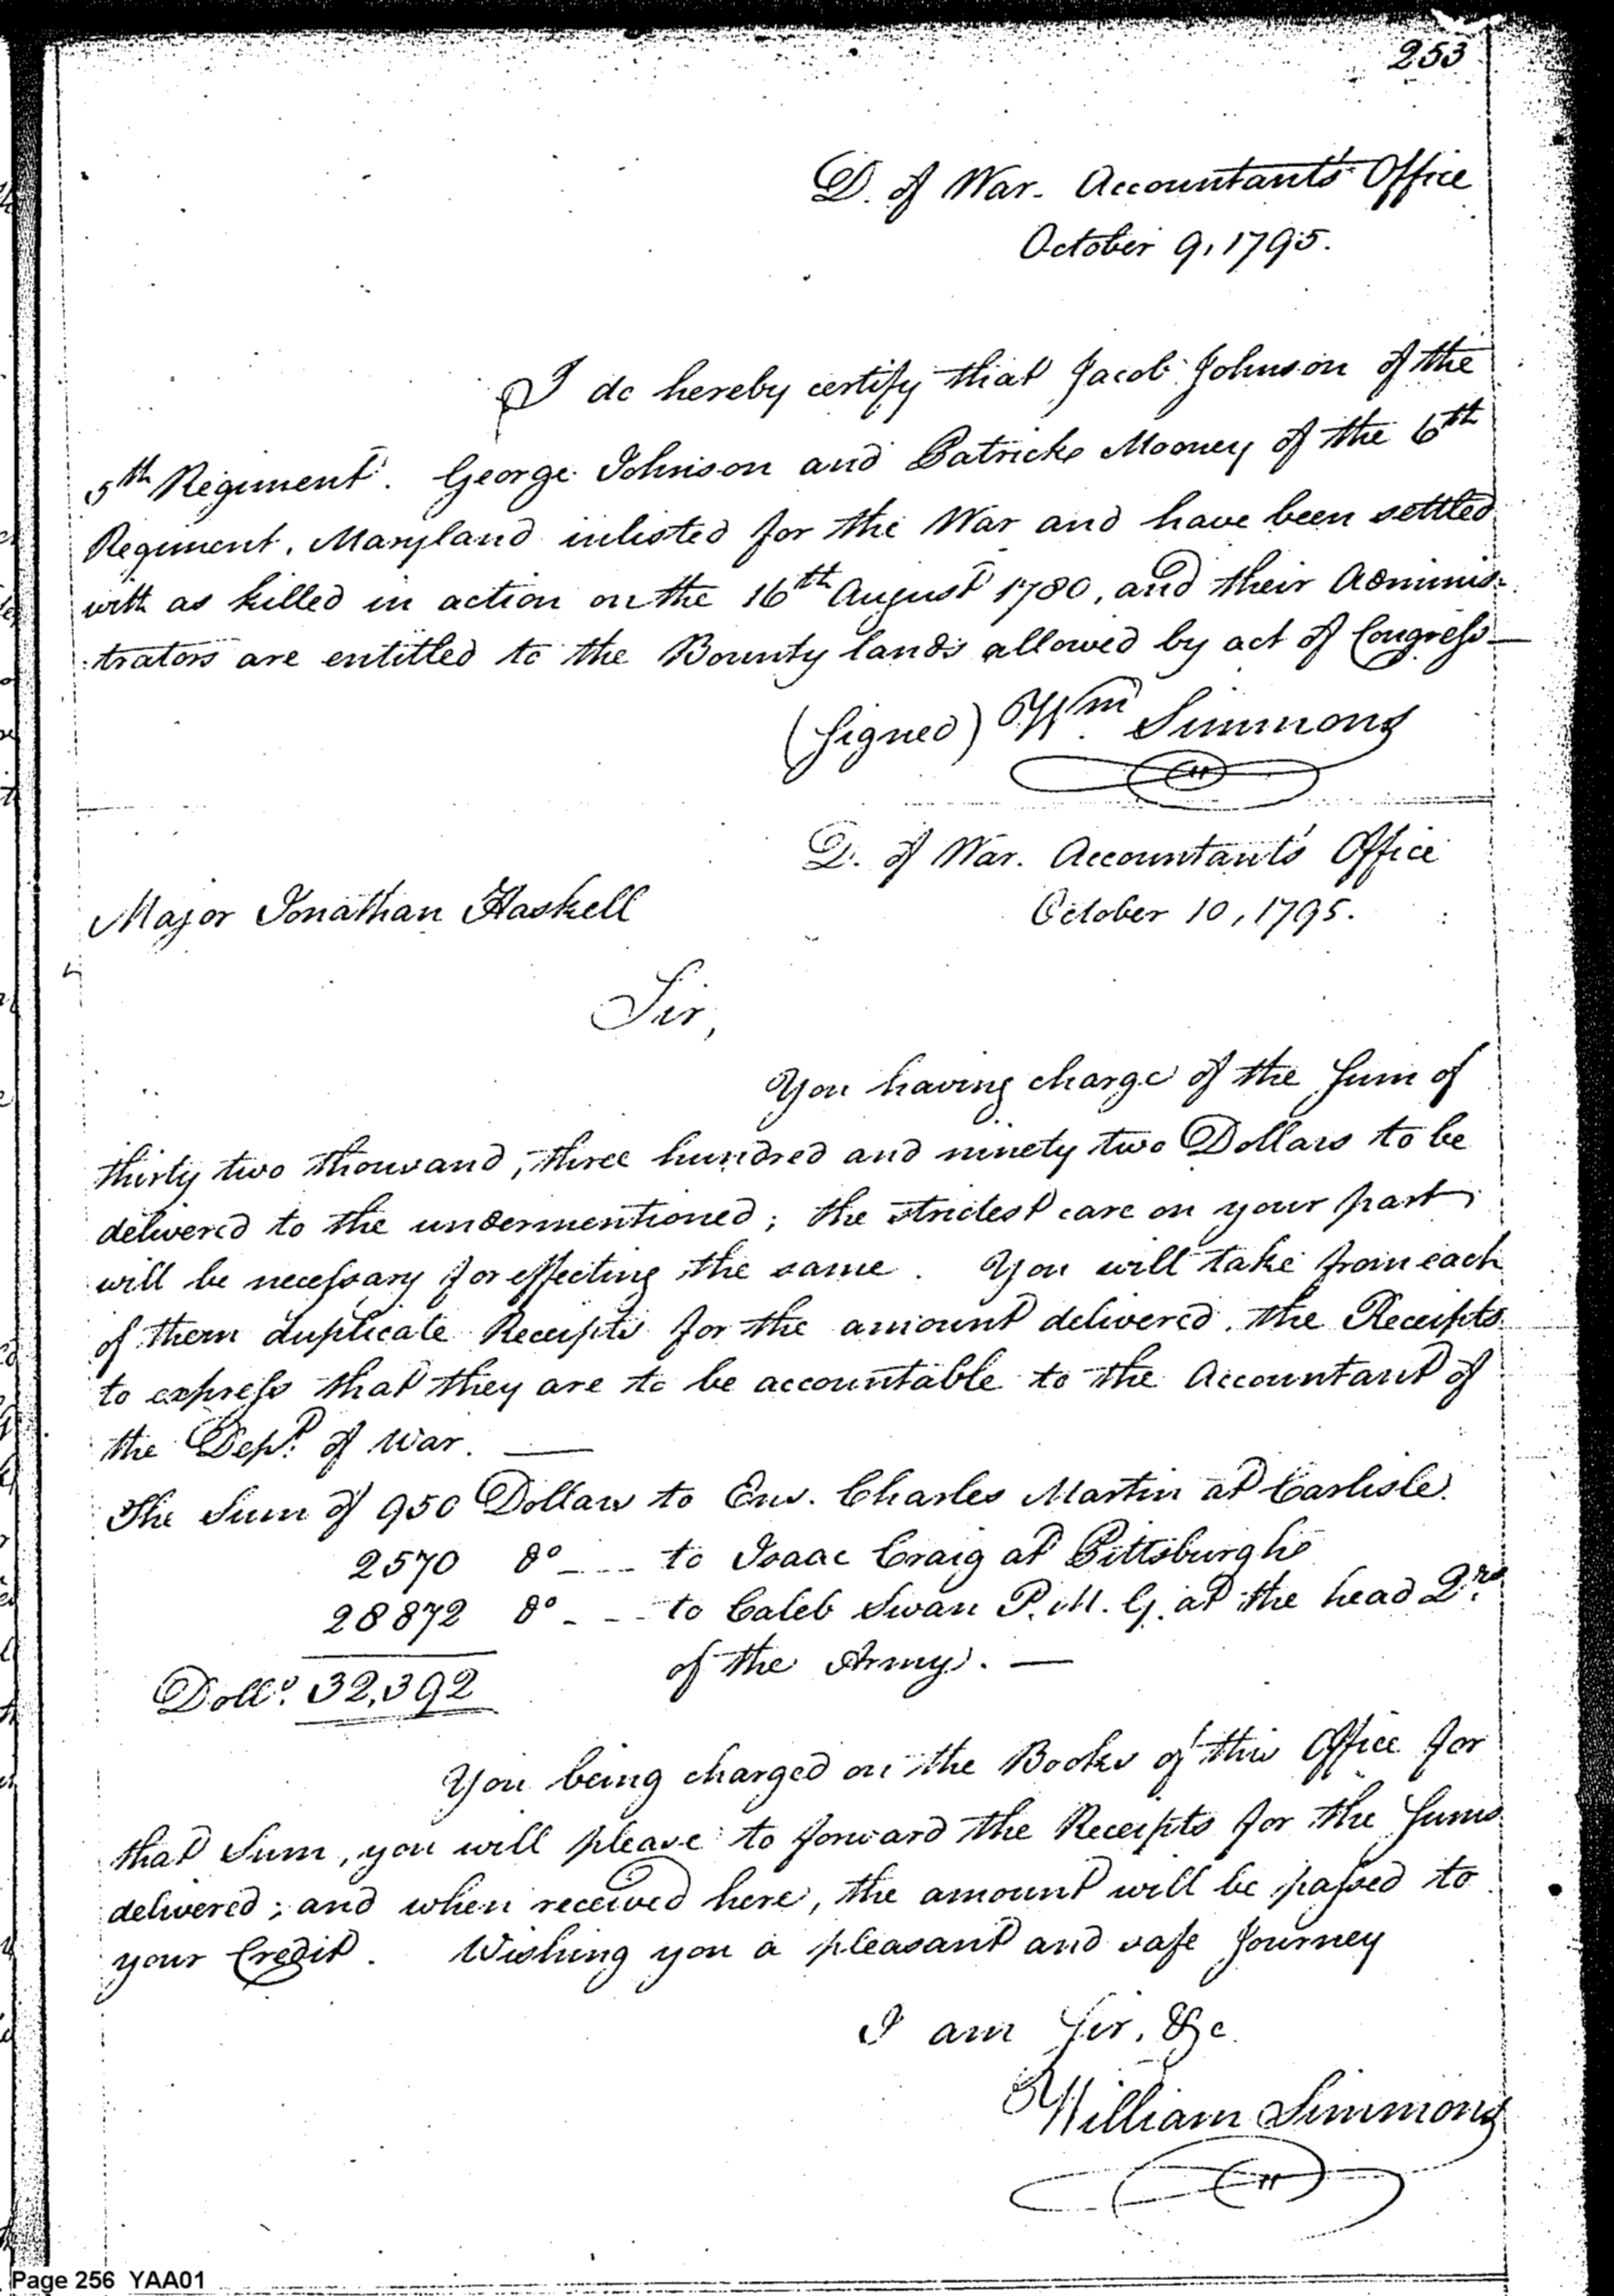 253
D. of War. Accountant's Office
October 9, 1795.
I do hereby certify that Jacob Johnson of the
5th Regiment. George Johnson and Patrick Mooney of the 6th
Regiment, Maryland inlisted for the War and have been settled
with as killed in action on the 16th August 1780, and their Adminis-
trators are entitled to the Bounty lands allowed by act of Congress—
(Signed) Wm. Simmons
D. of War. Accountant's Office
Major Jonathan Haskell
October 10, 1795.
Sir,
You having charge of the Sum of
thirty two thousand, three hundred and ninety two Dollars to be
delivered to the undermentioned; the strictest care on your part
will be necessary for effecting the same. You will take from each
of them duplicate Receipts for the amount delivered. the Receipts
to express that they are to be accountable to the Accountant of
the Dept. of War. —
The Sum of 950 Dollars to Ens. Charles Martin at Carlisle.
2570 do --- to Isaac Craig at Pittsburgh
28872 do --- to Caleb Swan P.M.G. at the head Qrs.
of the Army. —
Dolls. 32,392
You being charged on the Books of this Office for
that Sum, you will please to forward the Receipts for the Sums
delivered; and when received here, the amount will be passed to
your Credit. Wishing you a pleasant and safe Journey
I am Sir, &c.
William Simmons
Page 256 YAA01